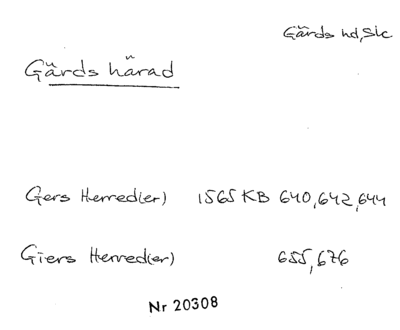 Gärds hd, Sk
Gärds härad
Gers Herred(er) 1565 KB 640, 642, 644
Giers Herred(er) 655, 676
Nr 20308